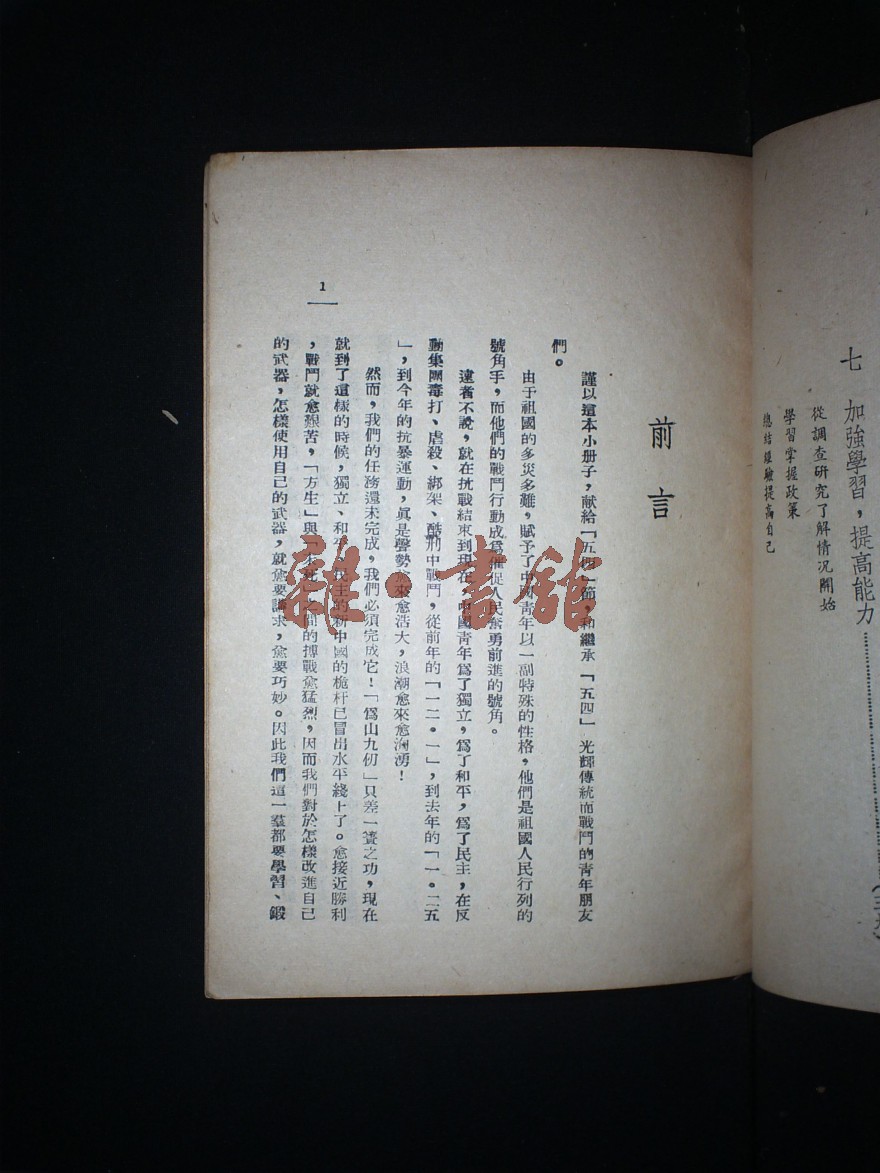 七　加強學習，提高能力……………………
從調查研究了解情况開始
學習掌握政策
總結經驗提高自己
前言
謹以這本小册子，献給「五四」節，和繼承「五四」光輝傳統而戰鬥的靑年朋友
們。
由于祖國的多災多難，賦予了中國靑年以一副特殊的性格，他們是祖國人民行列的
號角手，而他們的戰鬥行動成爲催促人民奮勇前進的號角。
遠者不說，就在抗戰結束到現在，中國靑年爲了獨立，爲了和平，爲了民主，在反
動集團毒打、虐殺、綁架、酷刑中戰鬥，從前年的「一二。一」，到去年的「一。二五
」，到今年的抗暴運動，眞是聲勢愈來愈浩大，浪潮愈來愈洶湧！
然而，我們的任務還未完成，我們必須完成它！「爲山九仞」只差一簣之功，現在
就到了這樣的時候，獨立、和平、民主的新中國的桅杆已冒出水平綫上了。愈接近勝利
，戰鬥就愈艱苦，「方生」與「未死」之間的搏戰愈猛烈，因而我們對於怎樣改進自己
的武器，怎樣使用自己的武器，就愈要講求，愈要巧妙。因此我們這一羣都要學習、鍛
1
雜·書館